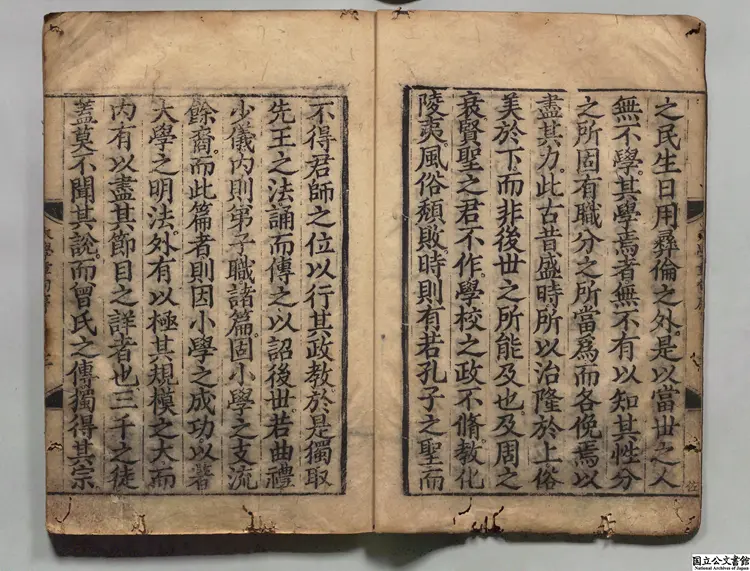 之民生日用彝倫之外是以當世之人
無不學。其學焉者無不有以知其性分
之所固有職分之所當爲而各俛焉以
盡其力。此古昔盛時所以治隆於上俗
美於下。而非後世之所能及也。及周之
衰賢聖之君不作。學校之政不脩。敎化
陵夷。風俗頹敗時則有若孔子之聖而
不得君師之位以行其政敎於是獨取
先王之法誦而傳之以詔後世若曲禮
少儀內則弟子職諸篇。固小學之支流
餘裔。而此篇者則因小學之成功以著
大學之明法。外有以極其規模之大而
內有以盡其節目之詳者也三千之徒
蓋莫不聞其說。而曾氏之傳獨得其宗
国立公文書館
National Archives of Japan